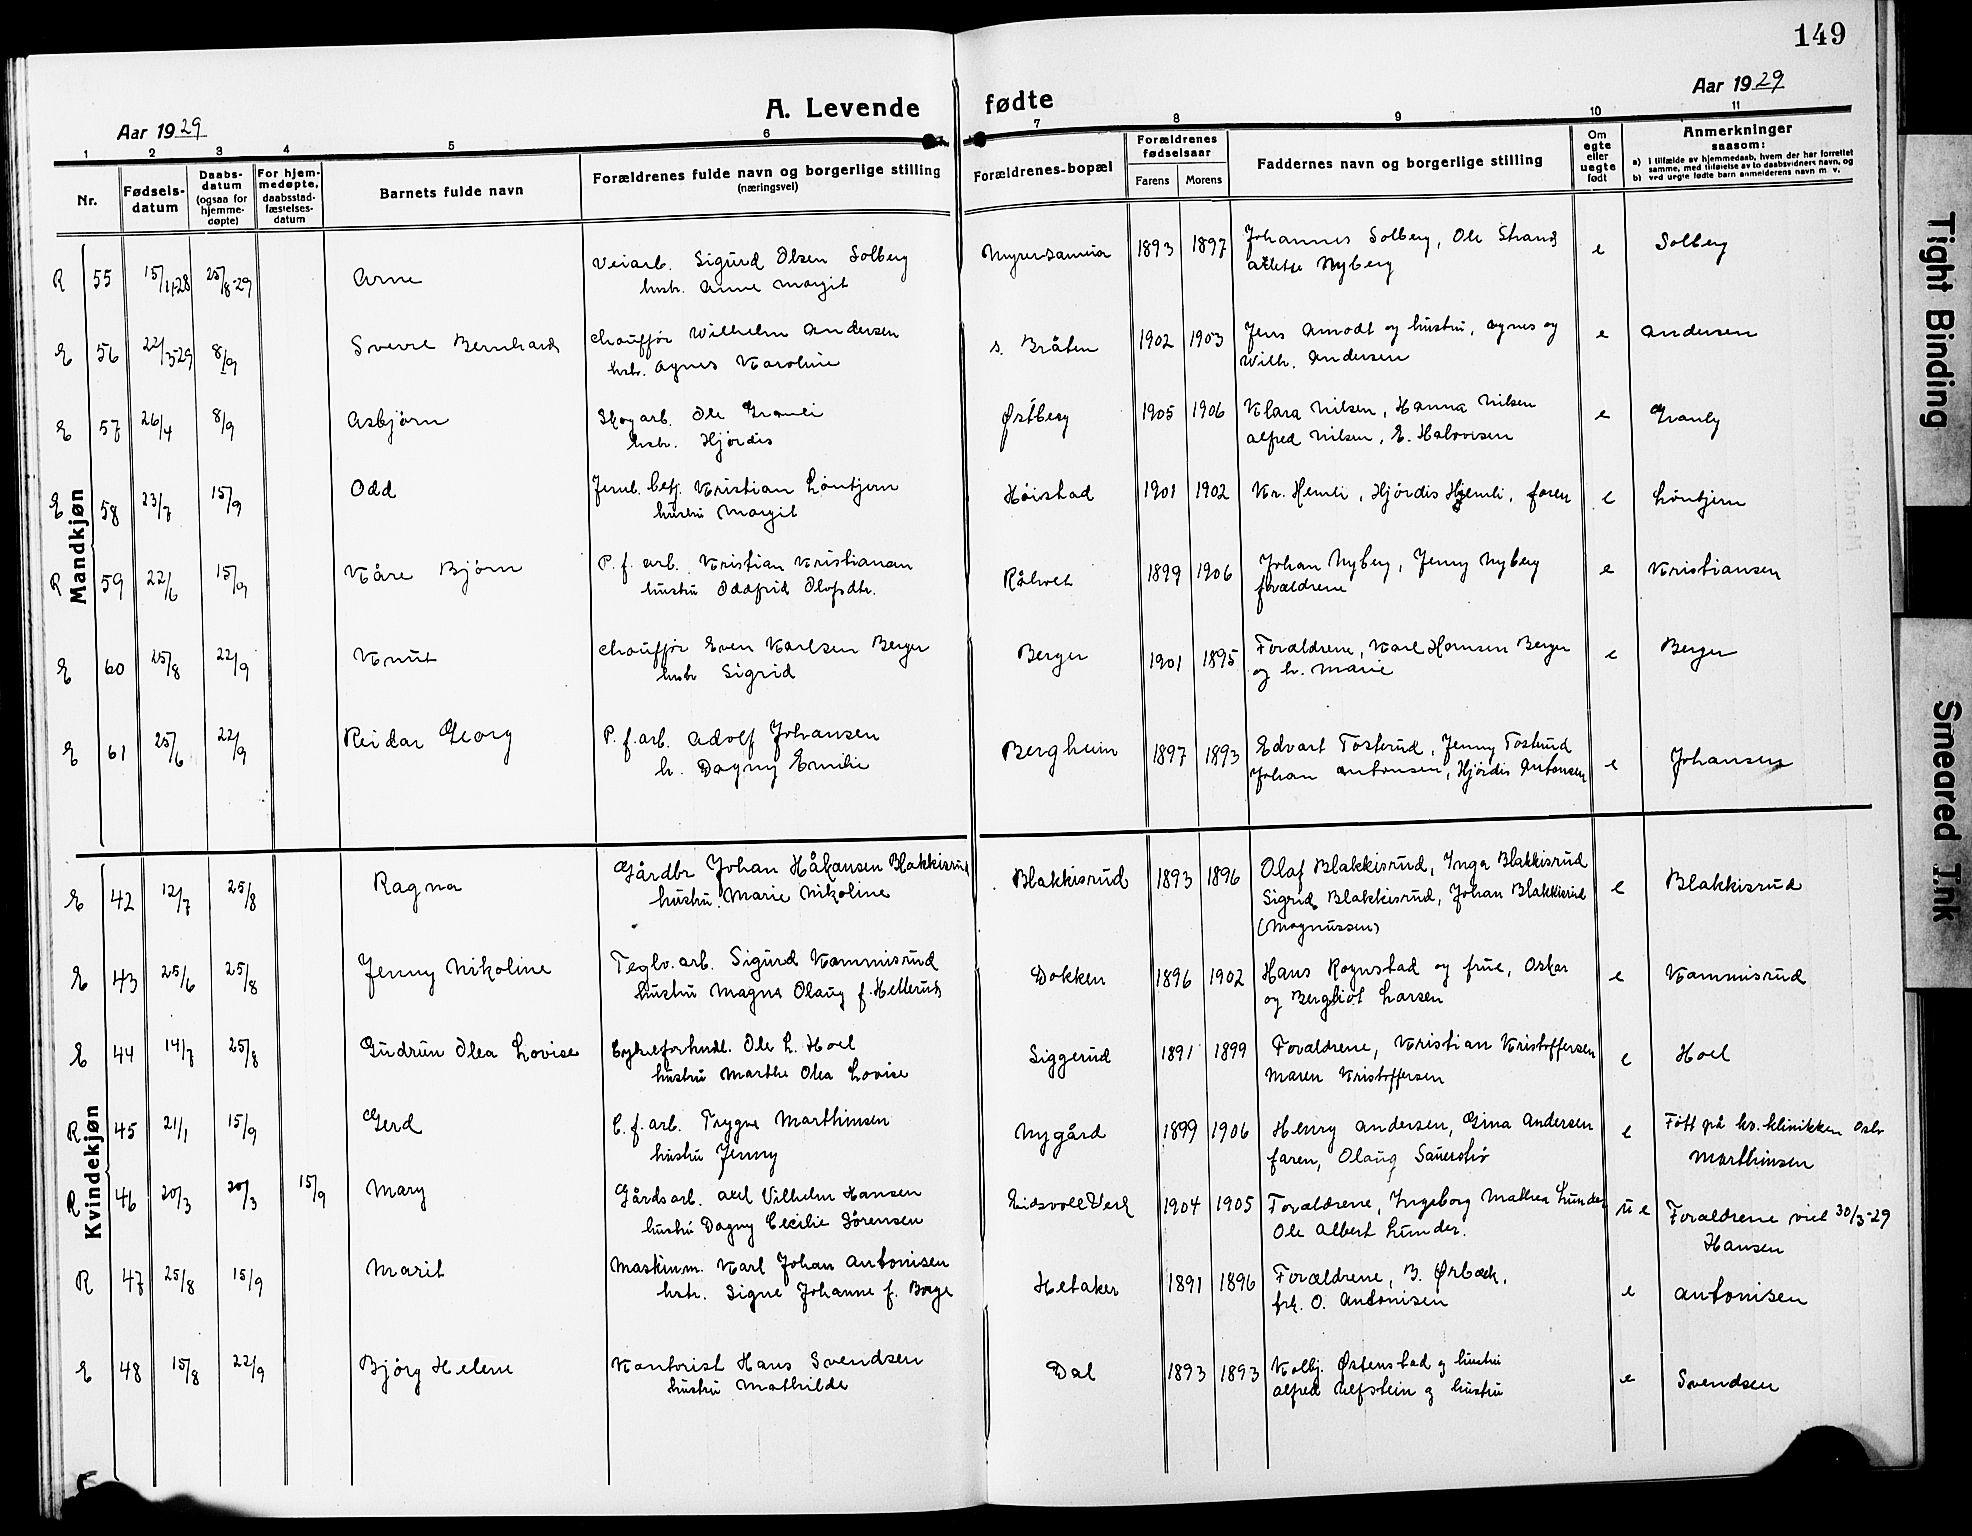 149
Aar 1929
A. Levende fødte
Aar 1929
1 2 3 4 5 6 7 8 9 10 11
Nr.
Fødsels-
datum
Daabs-
datum
(ogsaa for
hjemme-
døpte)
For hjem-
medøpte,
daabsstad-
fæstelses-
datum
Barnets fulde navn
Forældrenes fulde navn og borgerlige stilling
(næringsvei)
Forældrenes-bopæl
Forældrenes
fødselsaar
Farens Morens
Faddernes navn og borgerlige stilling
Om
egte
eller
uegte
født
Anmerkninger
saasom:
a) i tilfælde av hjemmedaab, hvem der har forrettet
samme, med tilføielse av to daabsvidners navn, og
b) ved uegte fødte barn anmelderens navn m. v.
Mandkjøn
R 55 15/11-28 25/8-29 Arne Veiarb. Sigurd Olsen Solberg 1893 1897 Johannes Solberg, Ole Strand e Solberg
hstr. Anne Margit Nyberg
E 56 22/3-29 8/9 Sverre Bernhard Chauffør Wilhelm Andersen s. Bråten 1902 1903 Jens Amodt og hustru, Agnes og e Andersen
hstr. Agnes Karoline Wilh. Andersen
E 57 26/4 8/9 Asbjørn Skogarb. Ole Granli Østberg 1905 1906 Klara Nilsen, Hanna Nilsen e Granly
hstr. Hjørdis Alfred Nilsen, E. Halvorsen
E 58 23/7 15/9 Odd Jernb. betj. Kristian Løntjern Høistad 1901 1902 Kr. Hemli, Hjørdis Hjemli, faren e Løntjern
hustru Margit
R 59 22/6 15/9 Kåre Bjørn P. f. arb. Kristian Kristiansen Råholt 1899 1906 Johan Nyberg, Jenny Nyberg e Kristiansen
hustru Oddfrid Olofsdtr. forældrene
E 60 25/8 22/9 Knut Chauffør Even Karlsen Berger Berger 1901 1895 Forældrene, Karl Hansen Berger e Berger
hstr Sigrid og h. Marie
E 61 25/6 22/9 Reidar Georg P. f. arb. Adolf Johansen Bergheim 1897 1893 Edvart Tosterud, Jenny Tosterud e Johansen
h. Dagny Emilie Johan Antonsen, Hjørdis Antonsen
Kvindekjøn
E 42 12/7 25/8 Ragna Gårdbr Johan Håkansen Blakkisrud Blakkisrud 1893 1896 Olaf Blakkisrud, Inga Blakkisrud e Blakkisrud
hustru Marie Nikoline Sigrid Blakkisrud, Johan Blakkisrud
(Magnussen)
E 43 25/6 25/8 Jenny Nikoline Teglv. arb. Sigurd Kammisrud Dokken 1896 1902 Hans Rognstad og frue, Oskar e Kammisrud
hustru Magna Olaug f. Hellerud og Bergliot Larsen
E 44 14/7 25/8 Gudrun Olea Lovise Cykleforhndl. Ole L. Hoel Siggerud 1891 1899 Forældrene, Kristian Kristoffersen e Hoel
hustru Marthe Olea Lovise Maren Kristoffersen
R 45 21/1 15/9 Gerd C. f. arb. Trygve Marthinsen Nygård 1899 1906 Henry Andersen, Gina Andersen e Født på kv. klinikken Oslo
hustru Jenny faren, Olaug Marthinsen
R 46 20/3 20/3 15/9 Mary Gårdsarb. Axel Vilhelm Hansen Eidsvoll Verk 1904 1905 Forældrene, Ingeborg Mathea Lunder u e Forældrene viet 30/3-29
hustru Dagny Cecilie Sørensen Ole Albert Lunder. Hansen
R 47 25/8 15/9 Marit Maskinm. Karl Johan Antonisen Hetaker 1891 1896 Forældrene, B. Ørbæck, e Antonisen
hstr. Signe Johanne f. Borge frk. O. Antonisen
E 48 15/8 22/9 Bjørg Helene Kontorist Hans Svendsen Dal 1893 1893 Kolbj. Østenstad og hustru e Svendsen
hustru Mathilde Alfred Ulfstein og hustru
Tight Binding
Smeared Ink